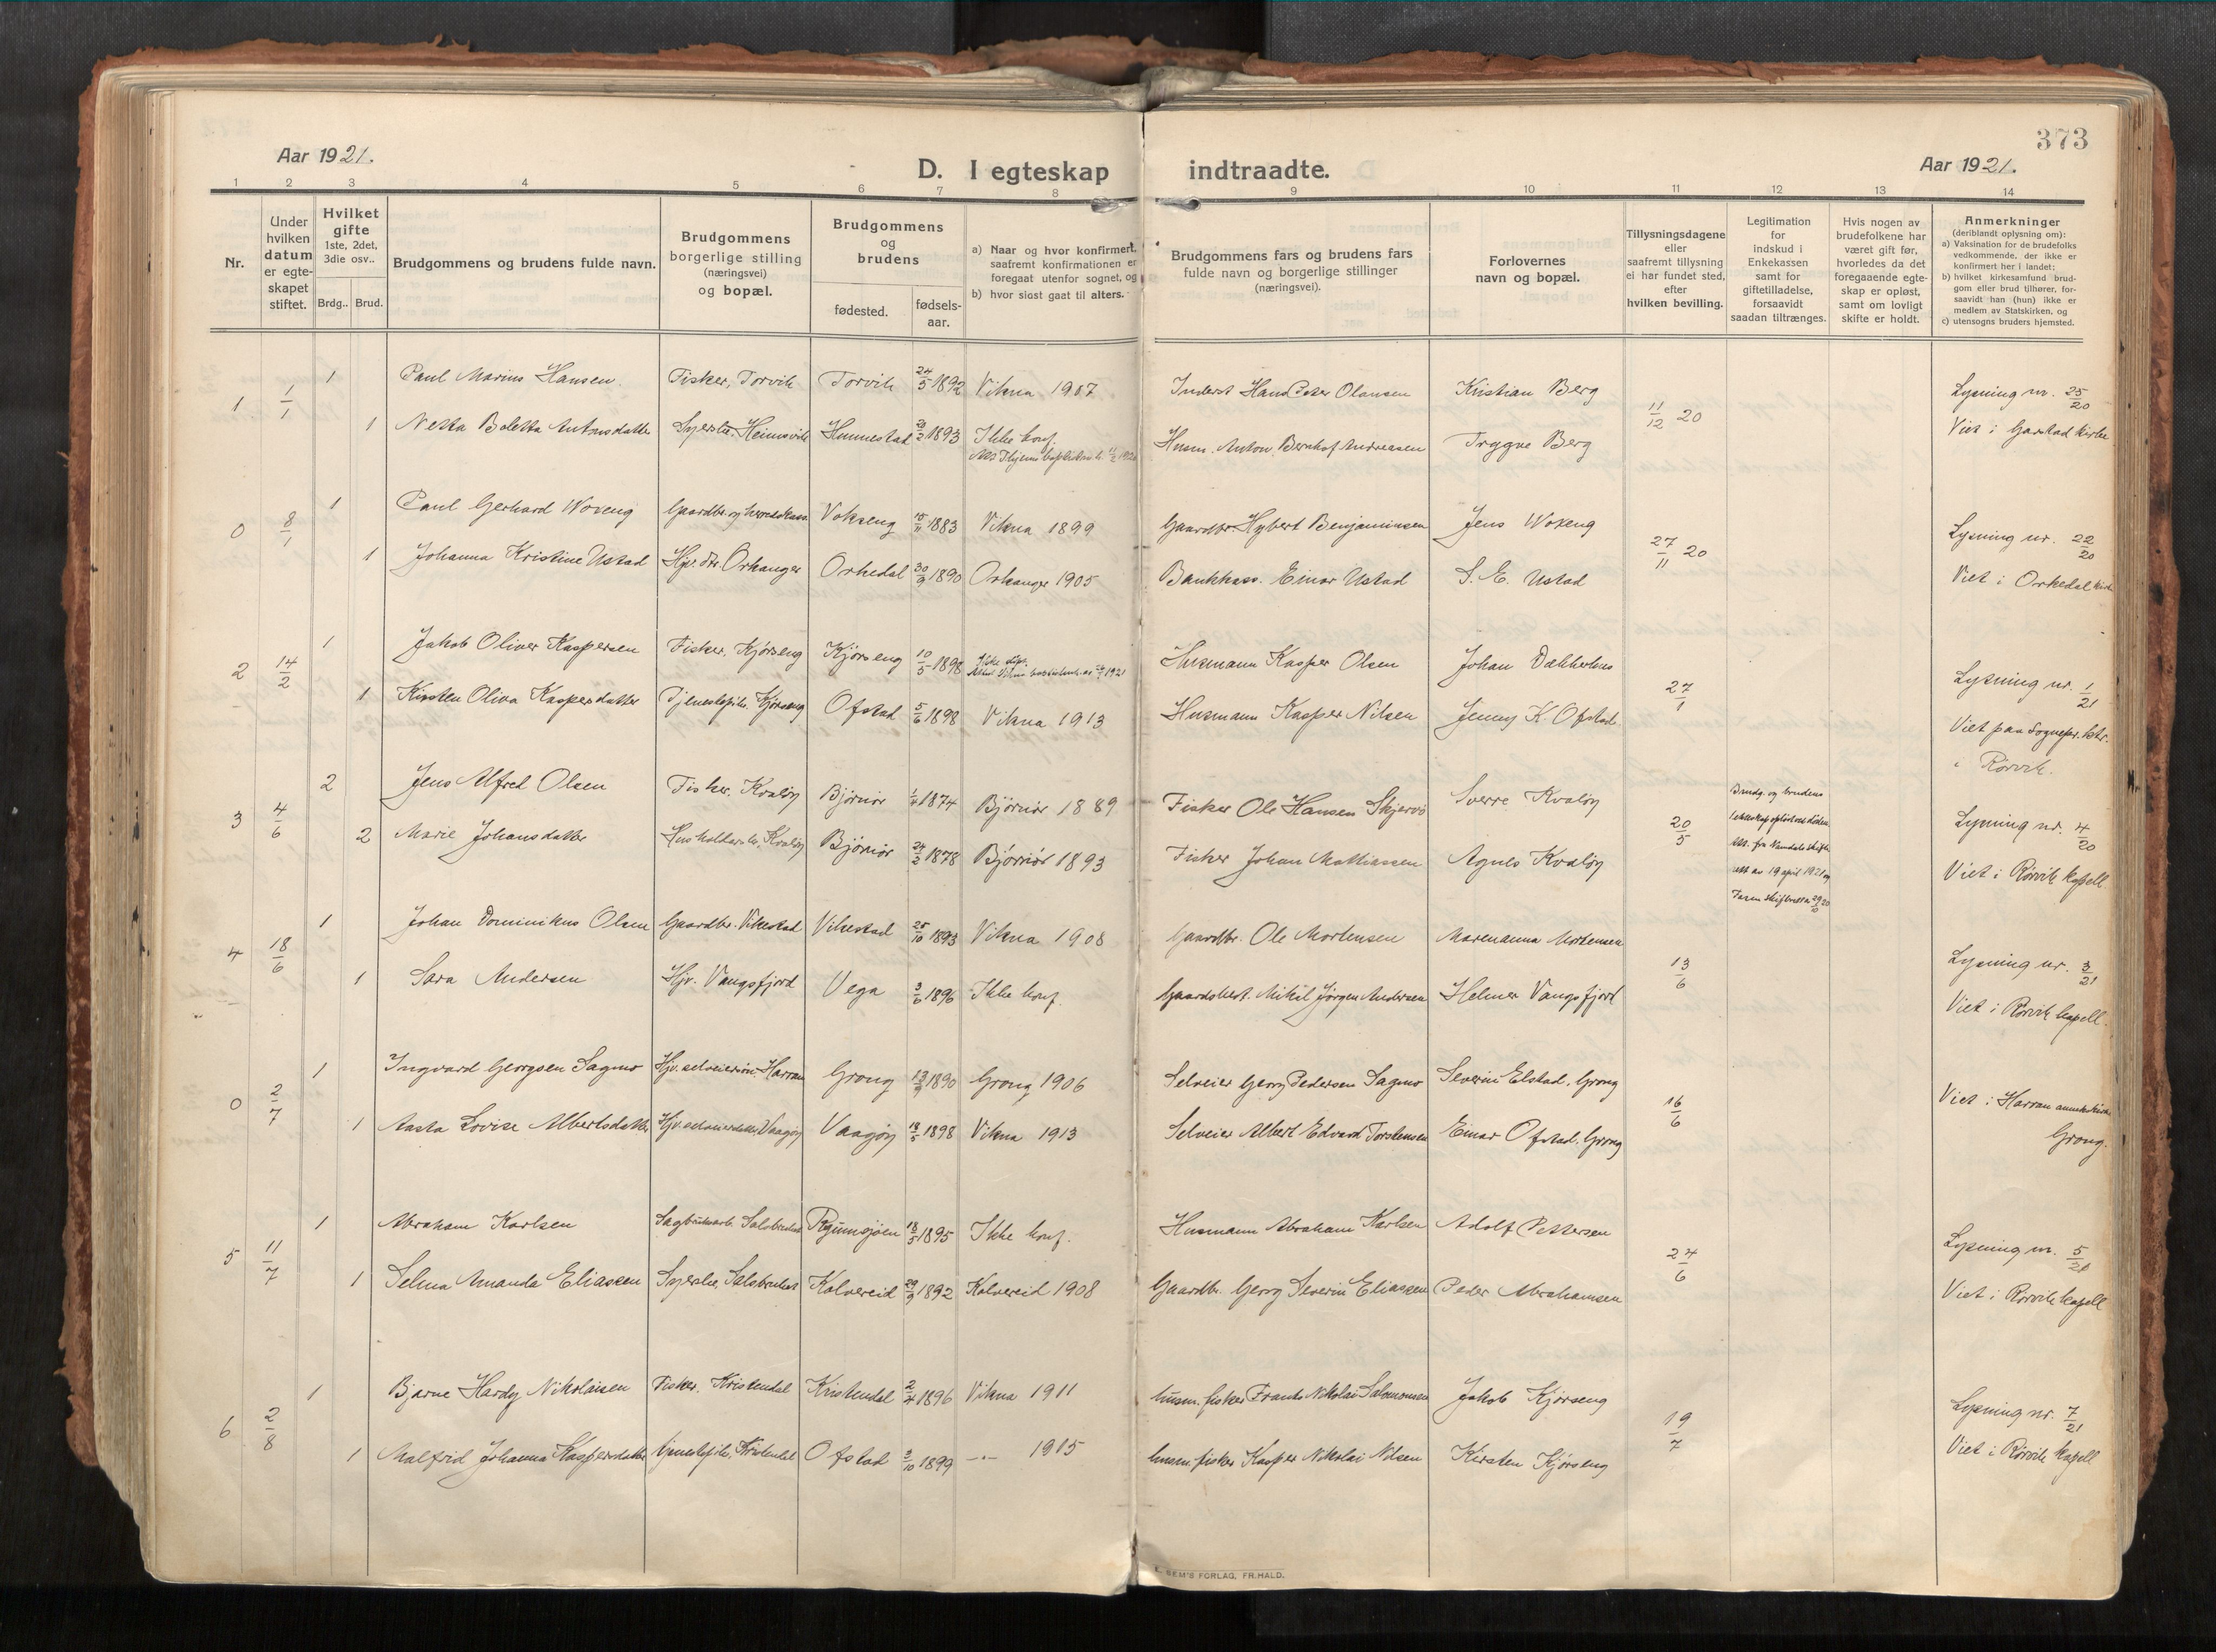 373
Aar 1921.
Aar 1921.
D. I egteskap indtraadte.
1 2 3 4 5 6 7 8 9 10 11 12 13 14
Nr.
Under hvilken datum er egteskapet stiftet.
Hvilket gifte 1ste, 2det, 3die osv..
Brdg.. Brud.
Brudgommens og brudens fulde navn.
Brudgommens borgerlige stilling (næringsvei) og bopæl.
Brudgommens og brudens
fødested. fødsels-aar.
a) Naar og hvor konfirmert, saafremt konfirmationen er foregaat utenfor sognet, og
b) hvor sidst gaat til alters.
Brudgommens fars og brudens fars fulde navn og borgerlige stillinger (næringsvei).
Forlovernes navn og bopæl.
Tillysningsdagene eller saafremt tillysning ei har fundet sted, efter hvilken bevilling.
Legitimation for indskud i Enkekassen samt for giftetilladelse, forsaavidt saadan tiltrænges.
Hvis nogen av brudefolkene har været gift før, hvorledes da det foregaaende egteskap er opløst, samt om lovligt skifte er holdt.
Anmerkninger (deriblandt oplysning om):
a) Vaksination for de brudefolks vedkommende, der ikke er konfirmert her i landet;
b) hvilket kirkesamfund brudgom eller brud tilhører, forsaavidt han (hun) ikke er medlem av Statskirken, og
c) utensogns bruders hjemsted.
1 1/1 1 Paul Marius Hansen. Fisker, Torvik Torvik 24/5 1892 Vikna 1907 Inderst Hans Peter Olausen Kristian Berg 11/12 20 Lysning nr. 25/20
1 Netta Boletta Antonsdatter Syerske, Heimsvik Hunnestad 1893 Ikke konf. Husm. Anton Bernhof Andreasen Trygve Berg Viet i Garstad kirke
0 8/1 1 Paul Gerhard Woxeng Gaardbr. og herredskass. Vokseng 15/11 1883 Vikna 1899 Gaardbr. Hybert Benjaminsen Jens Woxeng 27/11 20 Lysning nr. 22/20
1 Johanna Kristine Ustad Hjv. dtr Orkanger Orkedal 30/9 1890 Orkanger 1905 Bankkass. Einar Ustad S. E. Ustad Viet i Orkedal kirke
2 14/2 1 Jakob Oliver Kaspersen Fisker, Kjørseng Kjørseng 10/5 1898 Ikke døpt. Husmann Kasper Olsen Johan 27/1 Lysning nr. 1/21
1 Kirsten Oliva Kaspersdatter Tjenestepike. Kjørseng Ofstad 5/6 1898 Vikna 1913 Husmann Kasper Nilsen Jenny K. Ofstad. Viet paa Sognepr. ktr. i Rørvik.
3 4/6 2 Jens Alfred Olsen Fisker. Kvaløy Bjørnør 1874 Bjørnør 1889 Fisker Ole Hansen Skjervø Sverre Kvaløy 20/5 Brudg. og brudens Lysning nr. 4/20
2 Marie Johansdatter Husholderske, Kvaløy Bjørnør 24/2 1878 Bjørnør 1893 Fisker Johan Mattiassen Agnes Kvaløy ekteskap opløst ved døden. Att. fra Namdal skifterett av 19 april 1921 og Viet i Rørvik kapell
4 18/6 1 Johan Dominikus Olsen Gaardbr. Vikestad Vikestad 25/10 1893 Vikna 1908 Gaardbr. Ole Mortensen Marenanna Mortensen 13/6 Lysning nr. 3/21
1 Sara Andersen Hjv. Vangsfjord Vega 3/6 1896 Ikke konf. Gaardsbest. Mikil Jørgen Andersen Helmer Vangsfjord Viet i Rørvik kapell.
0 2/7 1 Ingvard Georgsen Sagmo Hjv. selveiersøn. Harran Grong 13/9 1890 Grong 1906 Selveier Georg Pedersen Sagmo Severin Elstad, Grong 16/6 Viet i Harran annekskirke
1 Aasta Lovise Albertsdatter Hjv. selveierdatter, Vaagøy Vaagøy 18/5 1898 Vikna 1913 Selveier Albert Edvard Torstensen Einar Ofstad. Grong Grong.
5 11/7 1 Abraham Karlsen Sagbruksarb. Salsbruket 18/5 1895 Ikke konf. Husmann Abraham Karlsen Adolf Pettersen 24/6 Lysning nr. 5/20
1 Selma Amanda Eliassen Syerske, Salsbruket Kolvereid 29/9 1892 Kolvereid 1908 Gaardbr. Georg Severin Eliassen Peder Abrahamsen Viet i Rørvik kapell
6 2/8 1 Bjarne Hardy Nikolaisen Fisker. Kristendal Kristendal 2/4 1896 Vikna 1911 husm. fisker Frants Nikolai Salomonsen Jakob Kjørseng 19/7 Lysning nr. 7/21
1 Malfrid Johanna Kaspersdatter tjenestepike, Kristendal Ofstad 3/10 1899 —"— 1915 husm. fisker Kasper Nikolai Nilsen Kirsten Kjørseng Viet i Rørvik kapell
SEM'S FORLAG, FR.HALD.